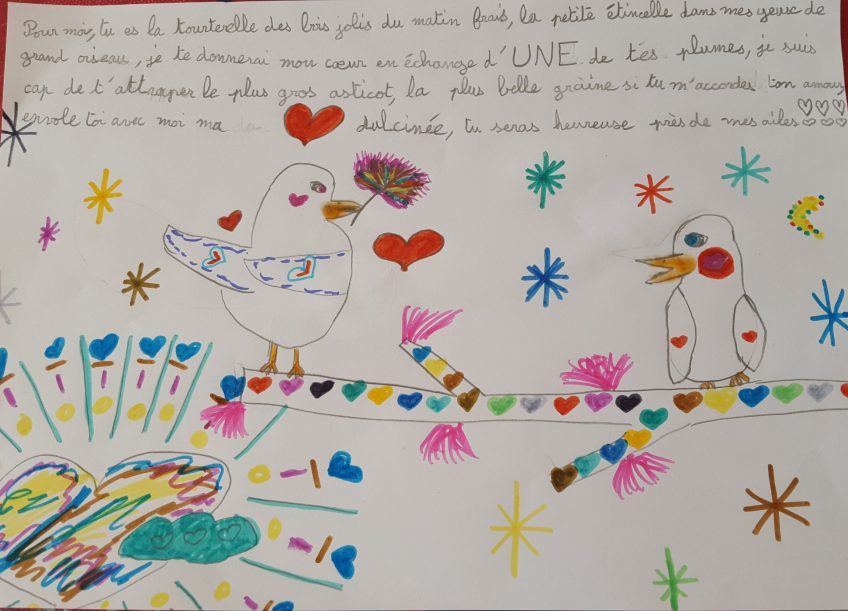 Pour moi, tu es la tourterelle des bois jolis du matin frais, la petite étincelle dans mes yeux de
grand oiseau, je te donnerai mon cœur en échange d'UNE de tes plumes, je suis
cap de t'attraper le plus gros asticot, la plus belle graine si tu m'accordes ton amour,
envole toi avec moi ma dulcinée, tu seras heureuse près de mes ailes